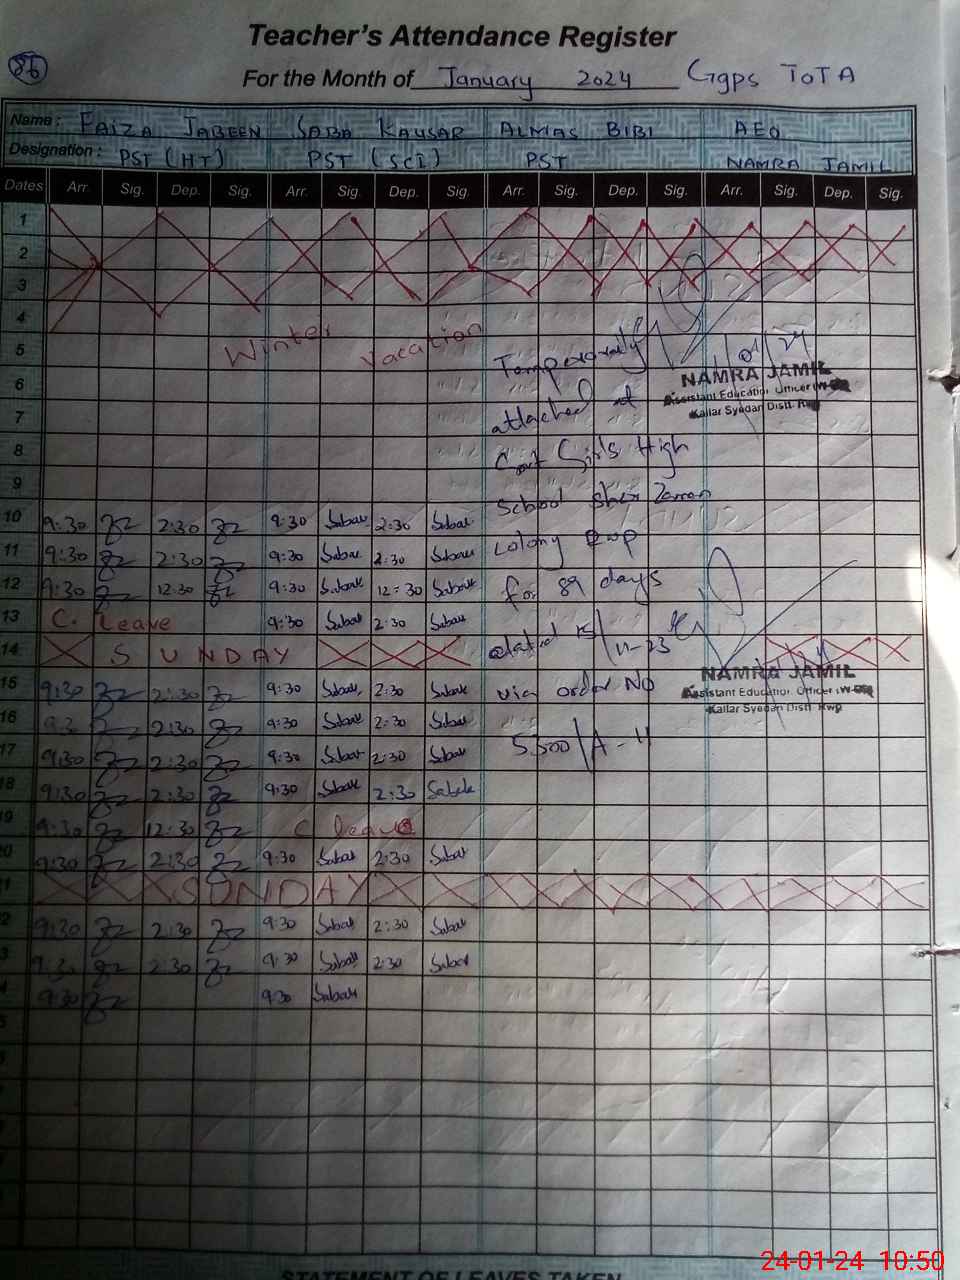 Teacher's Attendance Register
86
For the Month of January 2024 Ggps ToTA
Name: FAIZA JABEEN SABA KAUSAR ALMAS BIBI AEO
Designation: PST (HT) PST (SCI) PST NAMRA JAMIL
Dates Arr. Sig. Dep. Sig. Arr. Sig. Dep. Sig. Arr. Sig. Dep. Sig. Arr. Sig. Dep. Sig.
1
2
3
4
5
6
7
8
9
Winter Vacation
10 9:30 2:30 9:30 Sabak 2:30 Sabak
11 9:30 2:30 9:30 Sabak 2:30 Sabak
12 9:30 12:30 9:30 Sabak 12:30 Sabak
13 C. Leave 9:30 Sabak 2:30 Sabak
14 SUNDAY
15 9:30 2:30 9:30 Sabak 2:30 Sabak
16 9:30 2:30 9:30 Sabak 2:30 Sabak
17 9:30 2:30 9:30 Sabak 2:30 Sabak
18 9:30 2:30 9:30 Sabak 2:30 Sabak
19 9:30 12:30 C leave
20 9:30 2:30 9:30 Sabak 2:30 Sabak
21 SUNDAY
22 9:30 2:30 9:30 Sabak 2:30 Sabak
23 9:30 2:30 9:30 Sabak 2:30 Sabak
24 9:30 9:30 Sabak
Temporarily
attached at
Govt Girls High
School Sher Zaman
Colony Rwp
for 89 days
dated 15/11-23
via order NO
5300/A-11
NAMRA JAMIL
Assistant Education Officer
Kallar Syedan Distt. Rwp
NAMRA JAMIL
Assistant Education Officer
Kallar Syedan Distt. Rwp
STATEMENT OF LEAVES TAKEN
24-01-24 10:50